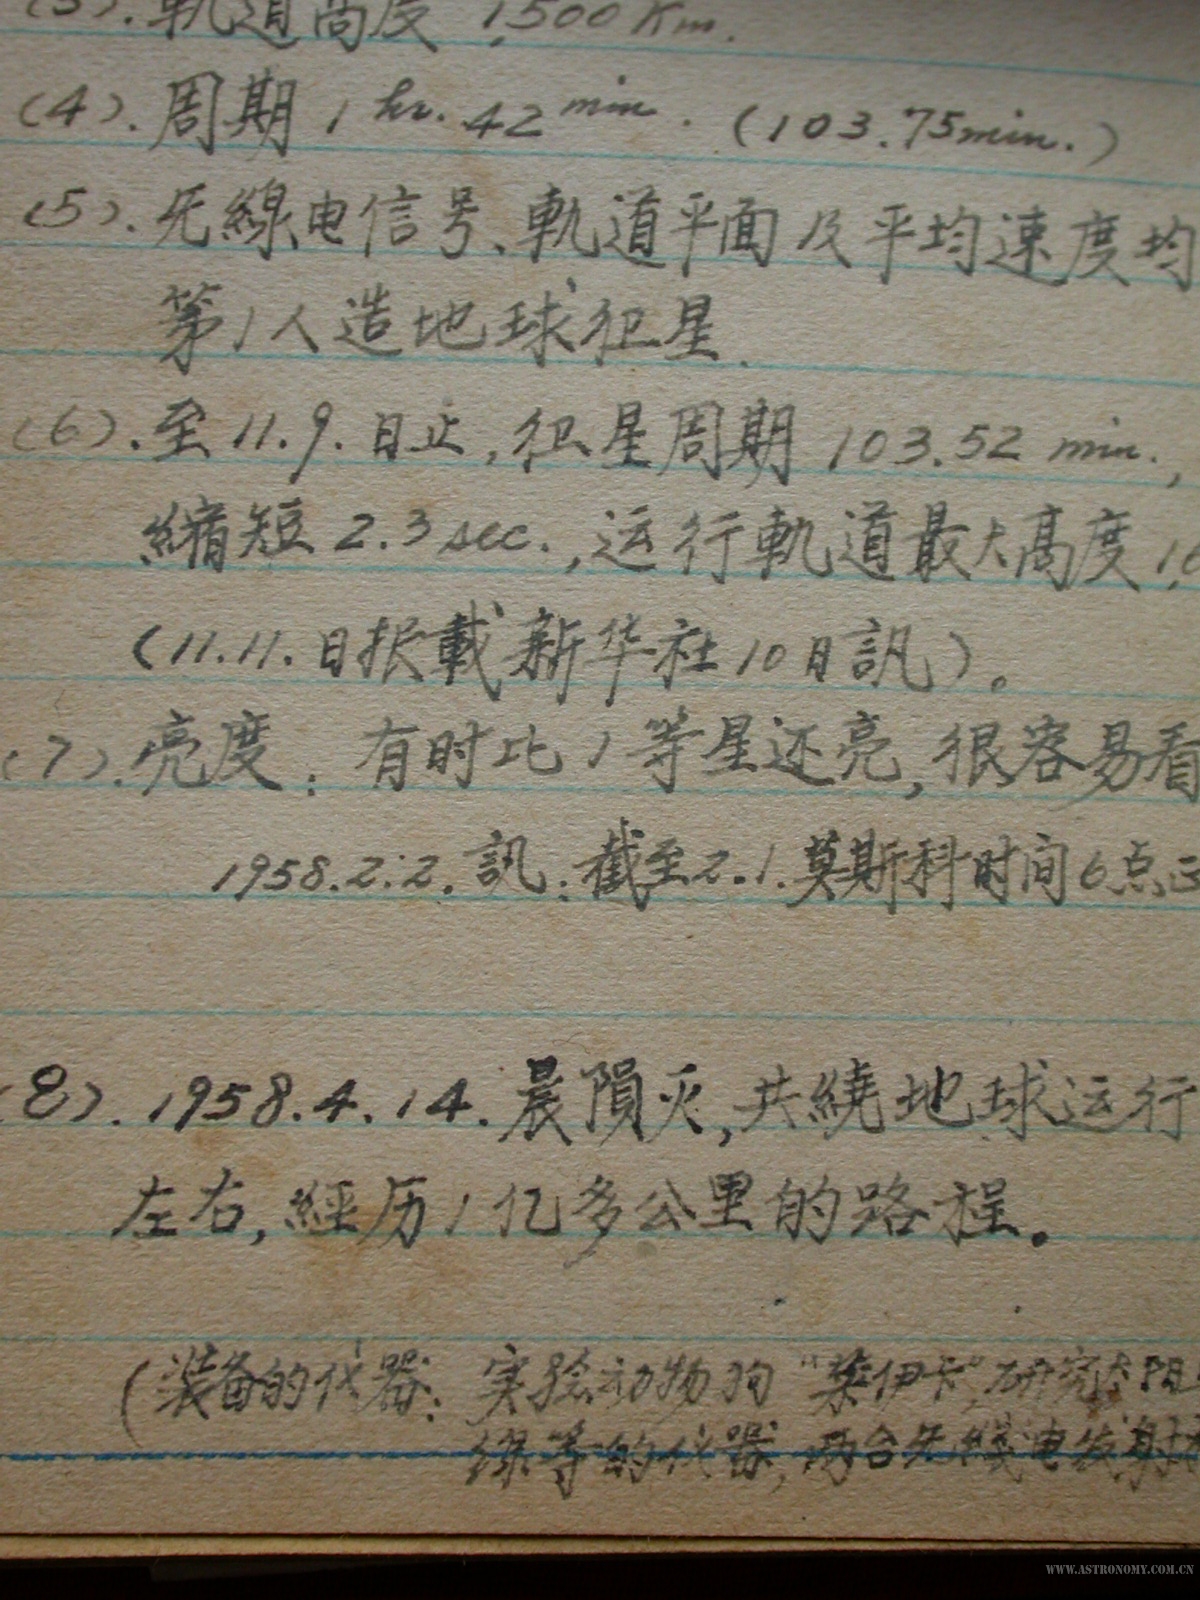 (3).軌道高度 1,500 Km.
(4).周期 1 hr. 42 min. (103.75min.)
(5).无線电信号、軌道平面及平均速度均
第1人造地球卫星.
(6).至11.9.日止,卫星周期 103.52 min.,
縮短 2.3 sec.,运行軌道最大高度 1,6
(11.11.日报載新华社10日訊)。
(7).亮度:有时比1等星还亮,很容易看
1958.2.2.訊:截至2.1.莫斯科时间6点正
(8).1958.4.14.晨隕灭,共繞地球运行
左右,經历1亿多公里的路程.
(装备的仪器:实验动物狗"莱伊卡",研究太阳
线等的仪器,两台无线电发射
WWW.ASTRONOMY.COM.CN